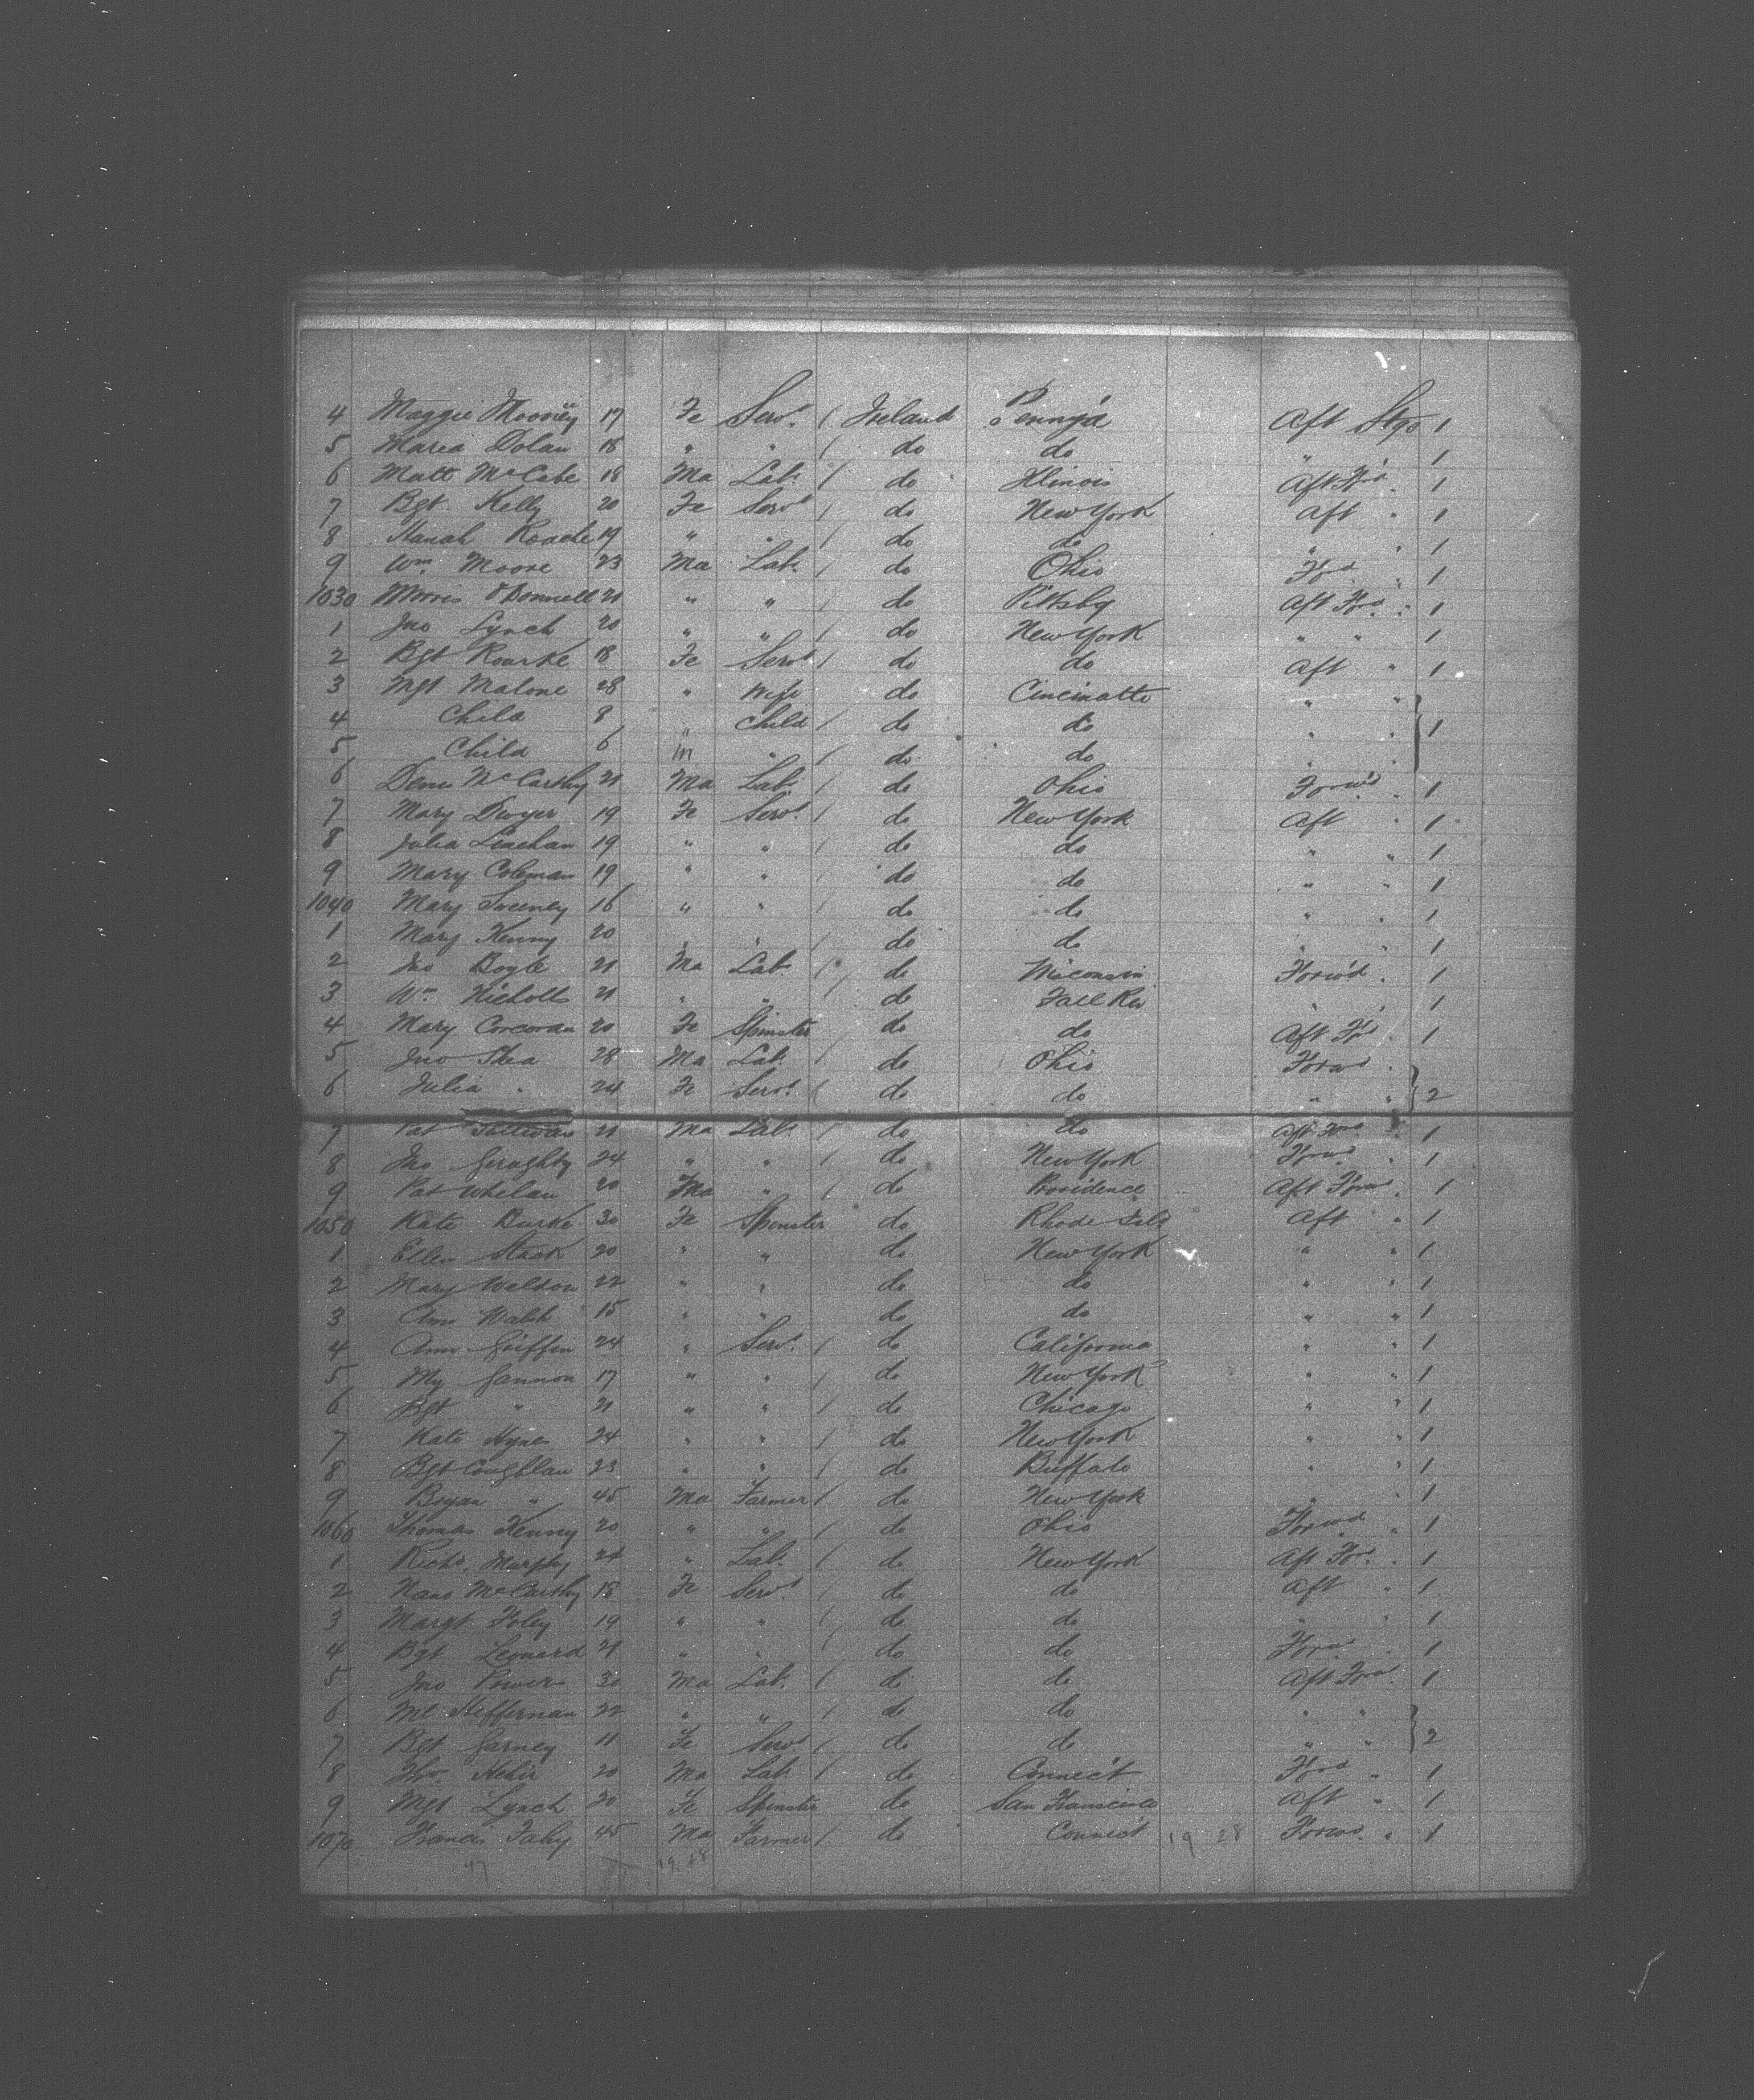 4 Maggie Mooney 17 Fe Servt / Ireland Pennya Aft Stge 1
5 Maria Dolan 18 " " / do do " " 1
6 Matt McCabe 18 Ma Lab. / do Illinois Aft Frd. " 1
7 Bgt. Kelly 20 Fe Servt / do New York Aft " 1
8 Hanah Roache 19 " " / do do " " 1
9 Wm Moore 23 Ma Lab. / do Ohio Ford " 1
1030 Morris O'Donnell 21 " " / do Pittsbg Aft Ford " 1
1 Jno Lynch 20 " " / do New York " " 1
2 Bgt Rourke 18 Fe Servt / do do Aft " 1
3 Mgt Malone 28 " Wife do Cincinatto " "
4 Child 8 " Child / do do " " } 1
5 Child 6 In " / do do " "
6 Denis McCarthy 21 Ma Lab. / do Ohio Forwd " 1
7 Mary Dwyer 19 Fe Servt / do New York Aft " 1
8 Julia Linehan 19 " " / do do " " 1
9 Mary Coleman 19 " " / do do " " 1
1040 Mary Sweeney 16 " " / do do " " 1
1 Mary Kenny 20 " " / do do " " 1
2 Jno Boyle 21 Ma Lab. / do Wisconsin Forwd. 1
3 Wm Nicholls 21 " " / do Fall Riv " " 1
4 Mary Corcoran 20 Fe Spinster do do Aft Frd. 1
5 Jno Shea 28 Ma Lab. / do Ohio Forwd "
6 Julia " 24 Fe Servt / do do " " } 2
7 Pat Sullivan 21 Ma Lab. / do do Aft Ford " 1
8 Jno Geraghty 24 " " / do New York Forwd " 1
9 Pat Whelan 20 Ma " / do Providence Aft Forw " 1
1050 Kate Burke 30 Fe Spinster do Rhode Isld Aft " 1
1 Ellen Stack 20 " " do New York " " 1
2 Mary Weldon 22 " " do do " " 1
3 Ann Walsh 15 " " do do " " 1
4 Ann Griffin 24 " Servt / do California " " 1
5 My Gannon 17 " " / do New York " " 1
6 Bgt " 21 " " / do Chicago " " 1
7 Kate Hynes 24 " " / do New York " " 1
8 Bgt Coughlan 23 " " / do Buffalo " " 1
9 Bryan " 45 Ma Farmer / do New York " " 1
1060 Thomas Kenny 20 " " / do Ohio Forwd " 1
1 Richd. Murphy 24 " Lab. / do New York Aft For. " 1
2 Nano McCarthy 18 Fe Servt / do do Aft " 1
3 Margt Foley 19 " " / do do " " 1
4 Bgt Leonard 21 " " / do do Forwd " 1
5 Jno Power 30 Ma Lab. / do do Aft Ford " 1
6 Ml Heffernan 22 " " / do do " "
7 Bgt Garney 11 Fe Servt / do do " " } 2
8 Kehir 20 Ma Lab. / do Connect Ford " 1
9 Mgt Lynch 20 Fe Spinster do San Francisco Aft " 1
1070 Francis Fahy 45 Ma Farmer / do Connect 19 28 Forwd " 1
47 19.28